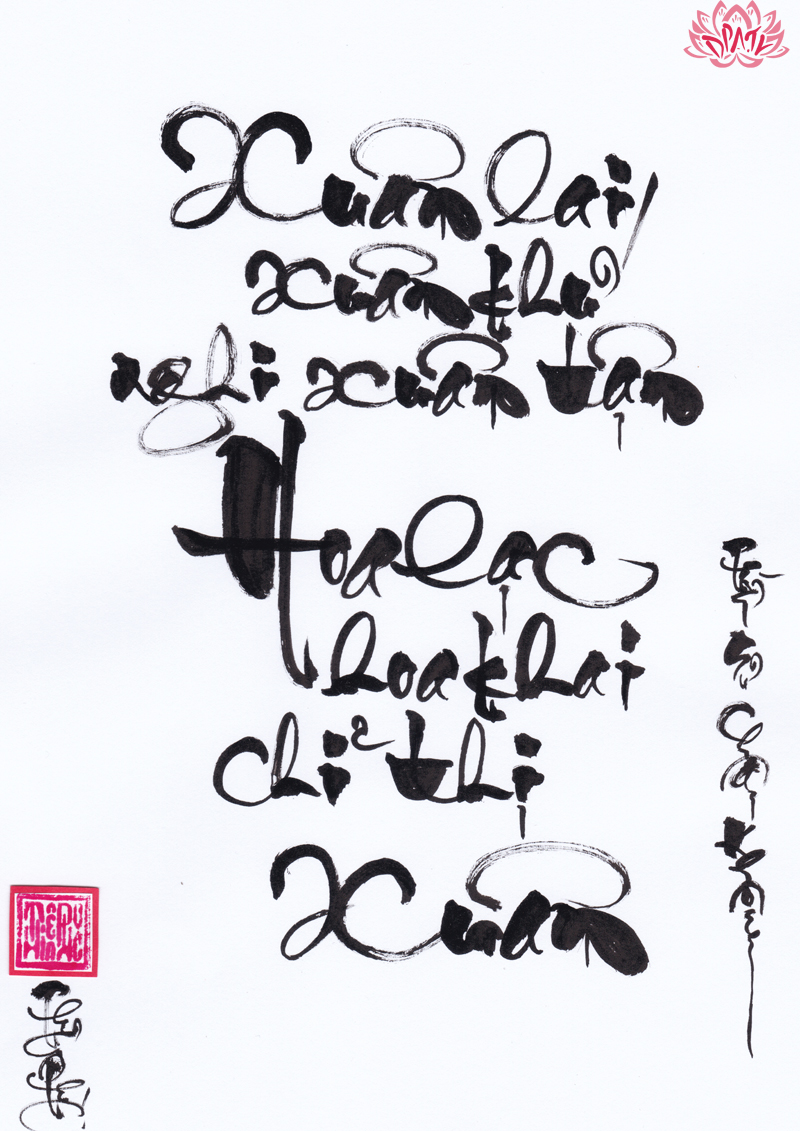 Xuân lai
xuân khứ
nghi xuân tận
Hoa lạc
hoa khai
chỉ thị
Xuân
DPATV